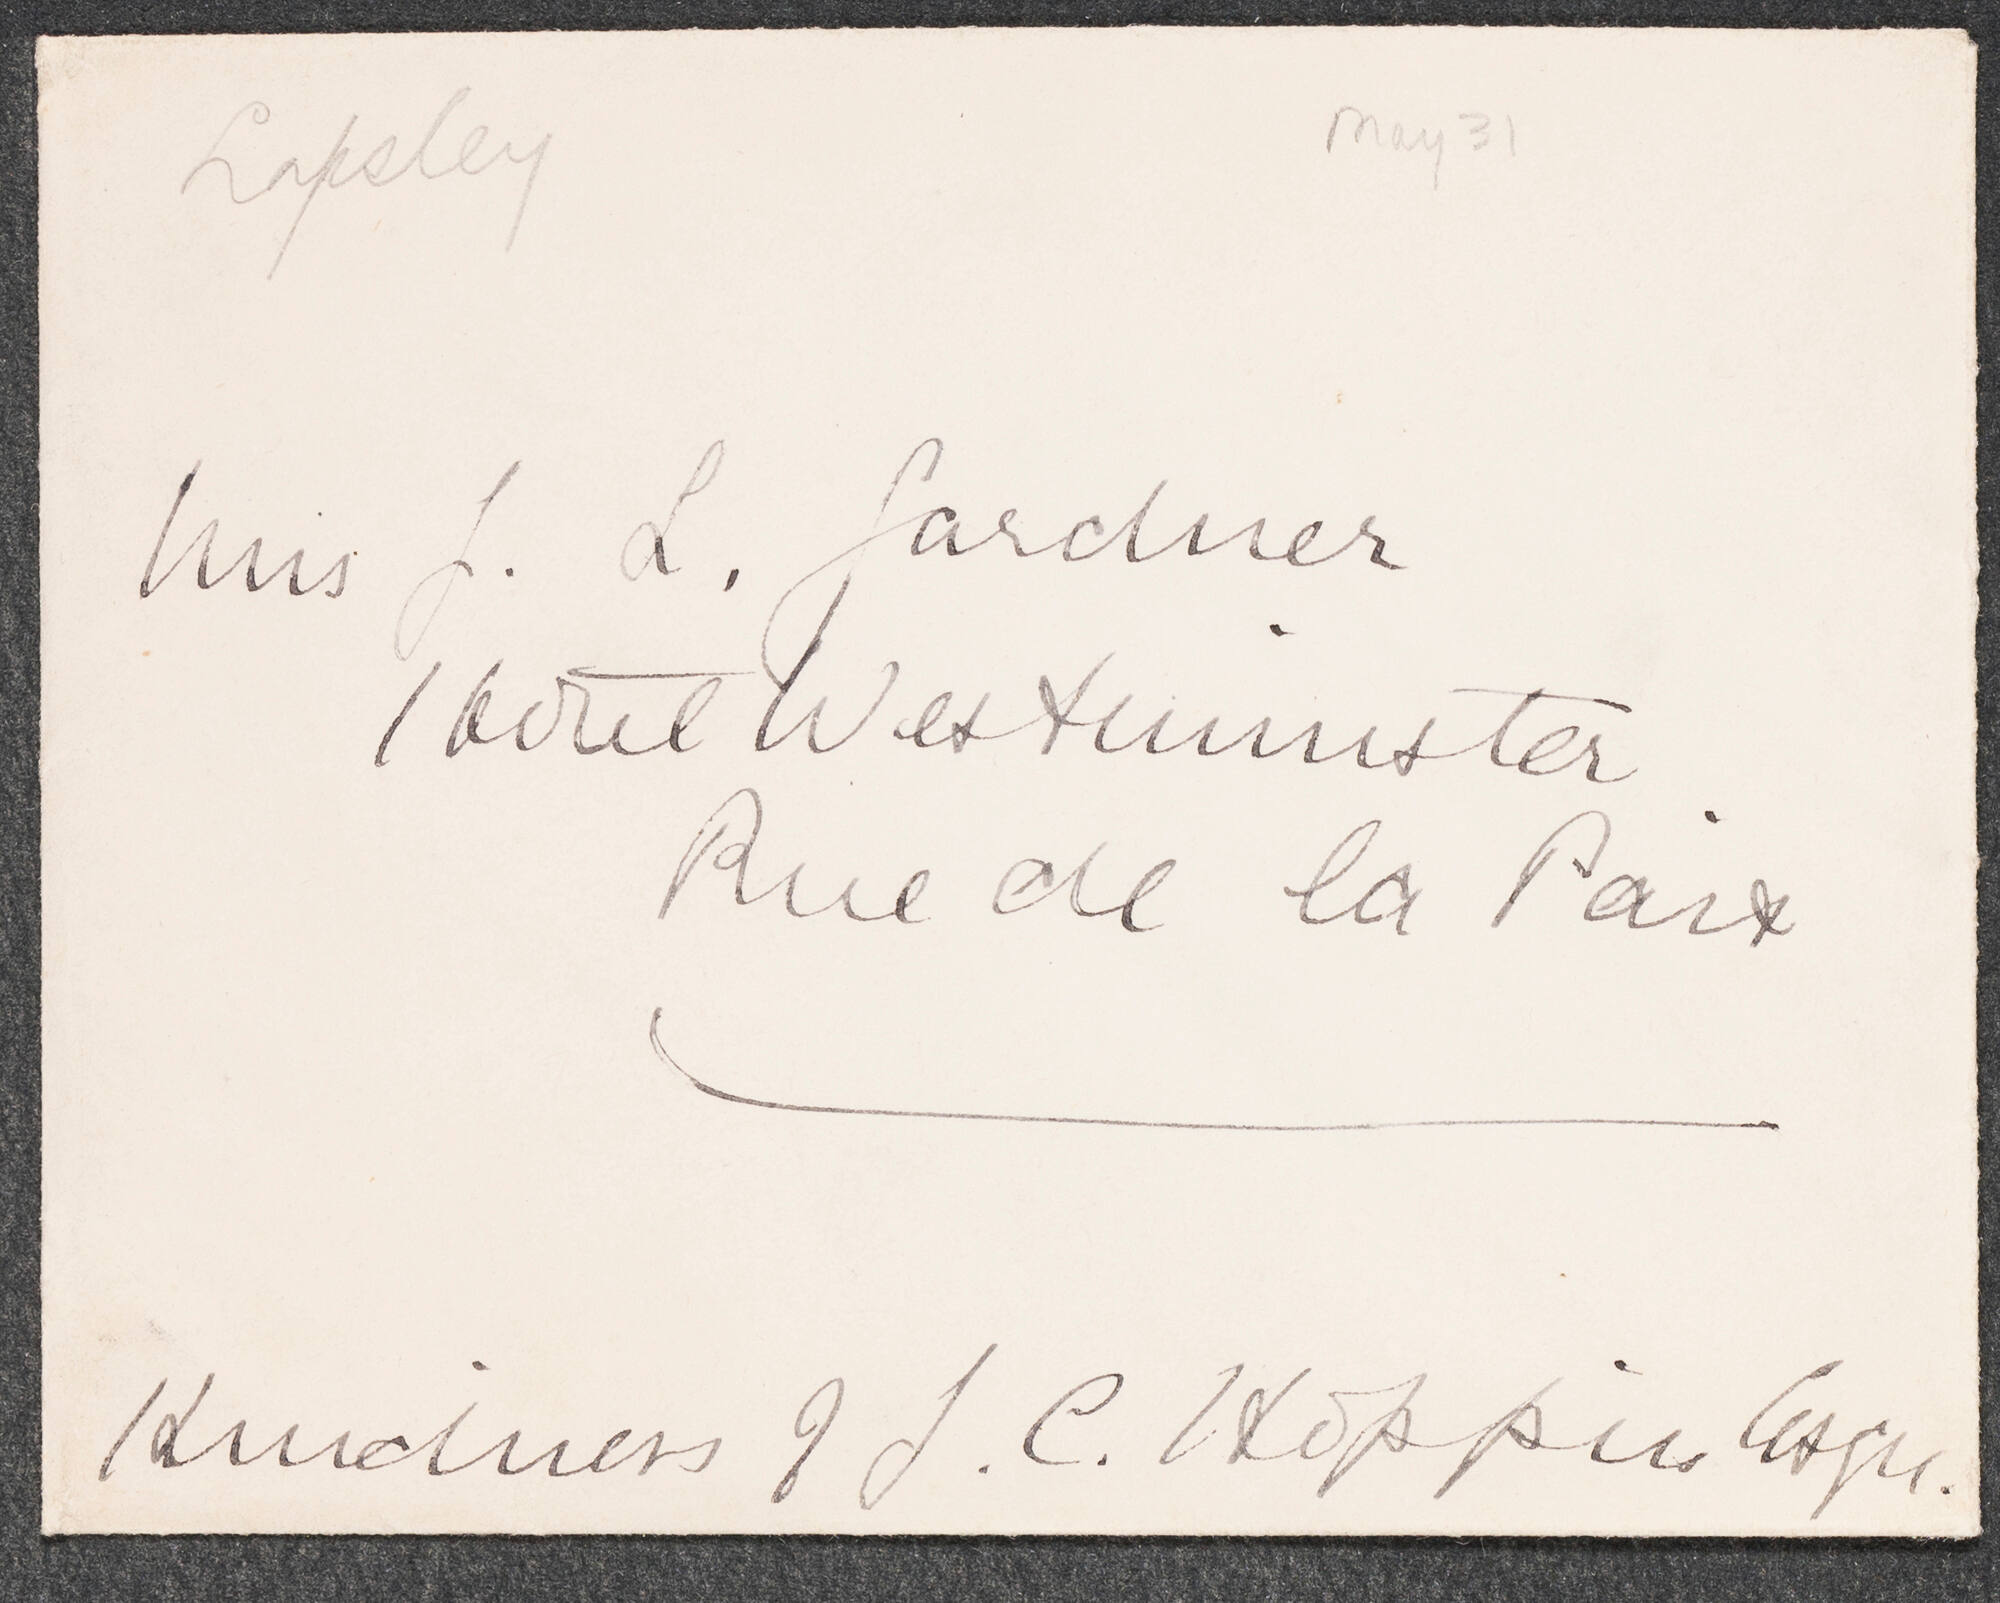 Lapsley May 31
Mrs J. L. Gardner
Hotel Westminster
Rue de la Paix
Kindness of J. C. Hoppin Esqr.